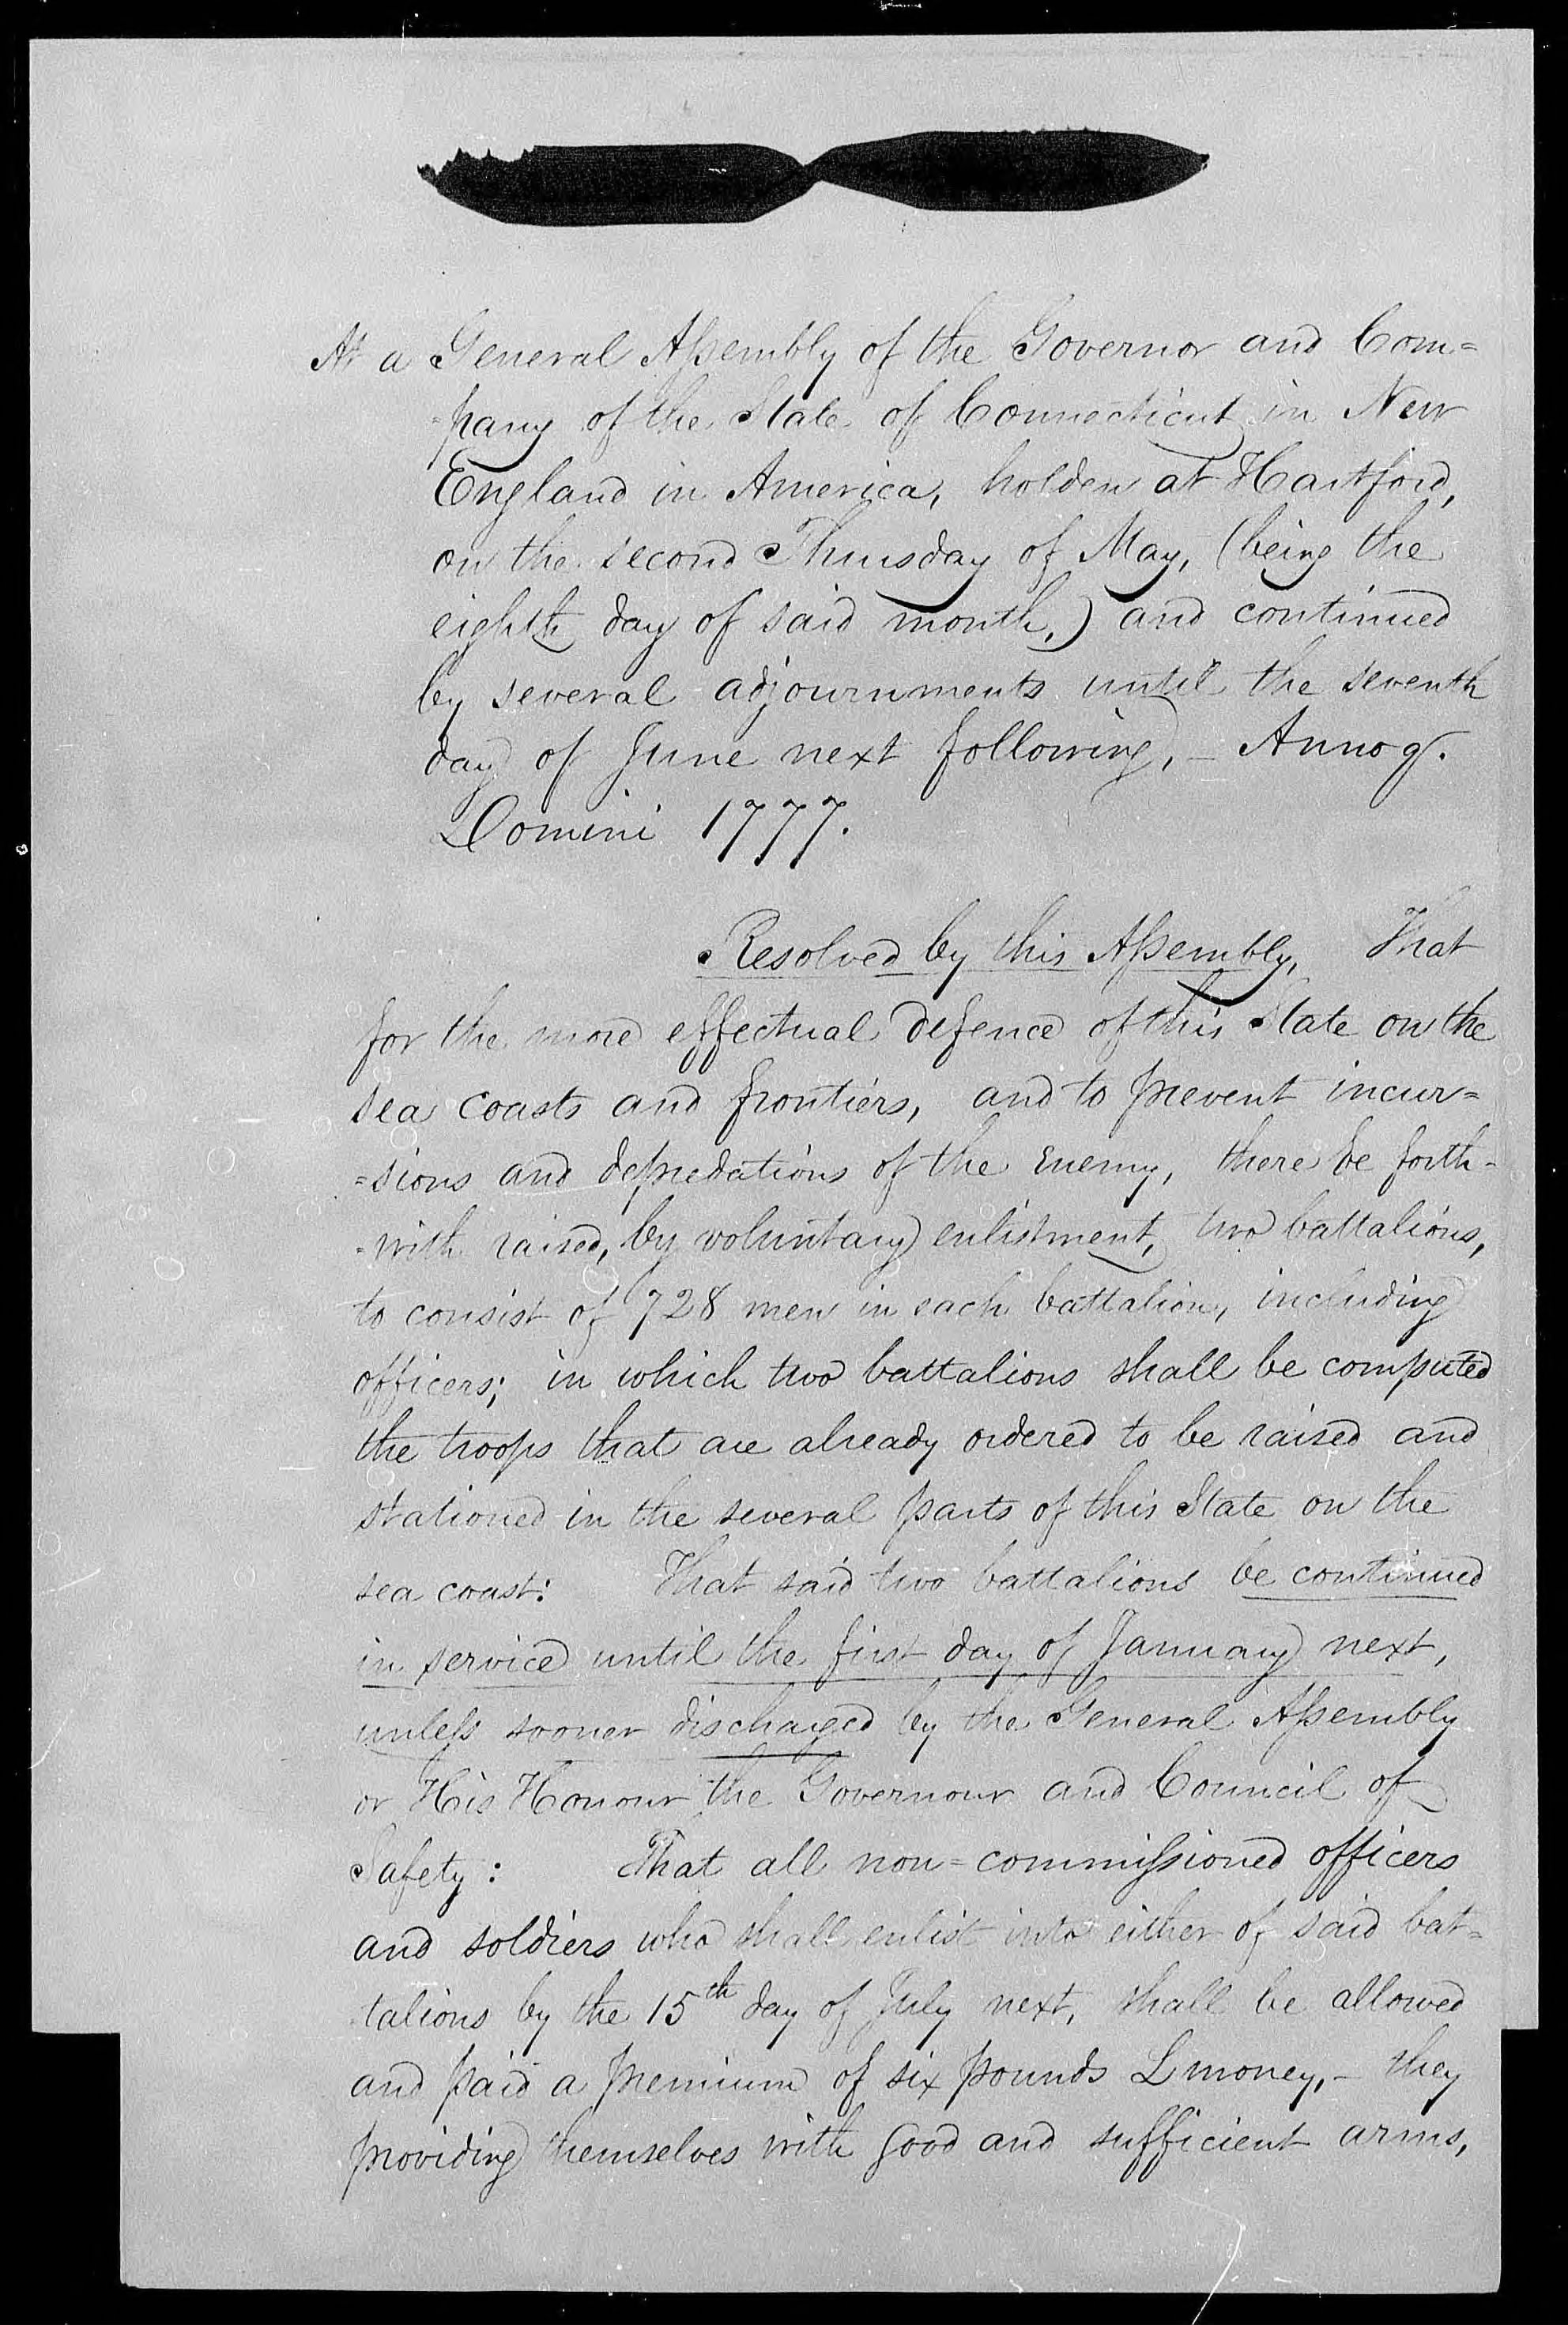 At a General Assembly of the Governor and Com=
-pany of the State of Connecticut in New
England in America, holden at Hartford,
on the second Thursday of May, (being the
eighth day of said month,) and continued
by several adjournments until the seventh
day of June next following, – Annoq.
Domini 1777.
Resolved by this Assembly, That
for the more effectual defence of this State on the
sea coasts and frontiers, and to prevent incur=
=sions and depredations of the enemy, there be forth-
-with raised, by voluntary enlistment, two battalions,
to consist of 728 men in each battalion, including
officers; in which two battalions shall be computed
the troops that are already ordered to be raised and
stationed in the several parts of this State on the
sea coast: That said two battalions be continued
in service until the first day of January next,
unless sooner discharged by the General Assembly
or His Honour the Governour and Council of
Safety: That all non=commissioned officers
and soldiers who shall enlist into either of said bat=
talions by the 15th day of July next, shall be allowed
and paid a premium of six pounds L money, – they
providing themselves with good and sufficient arms,